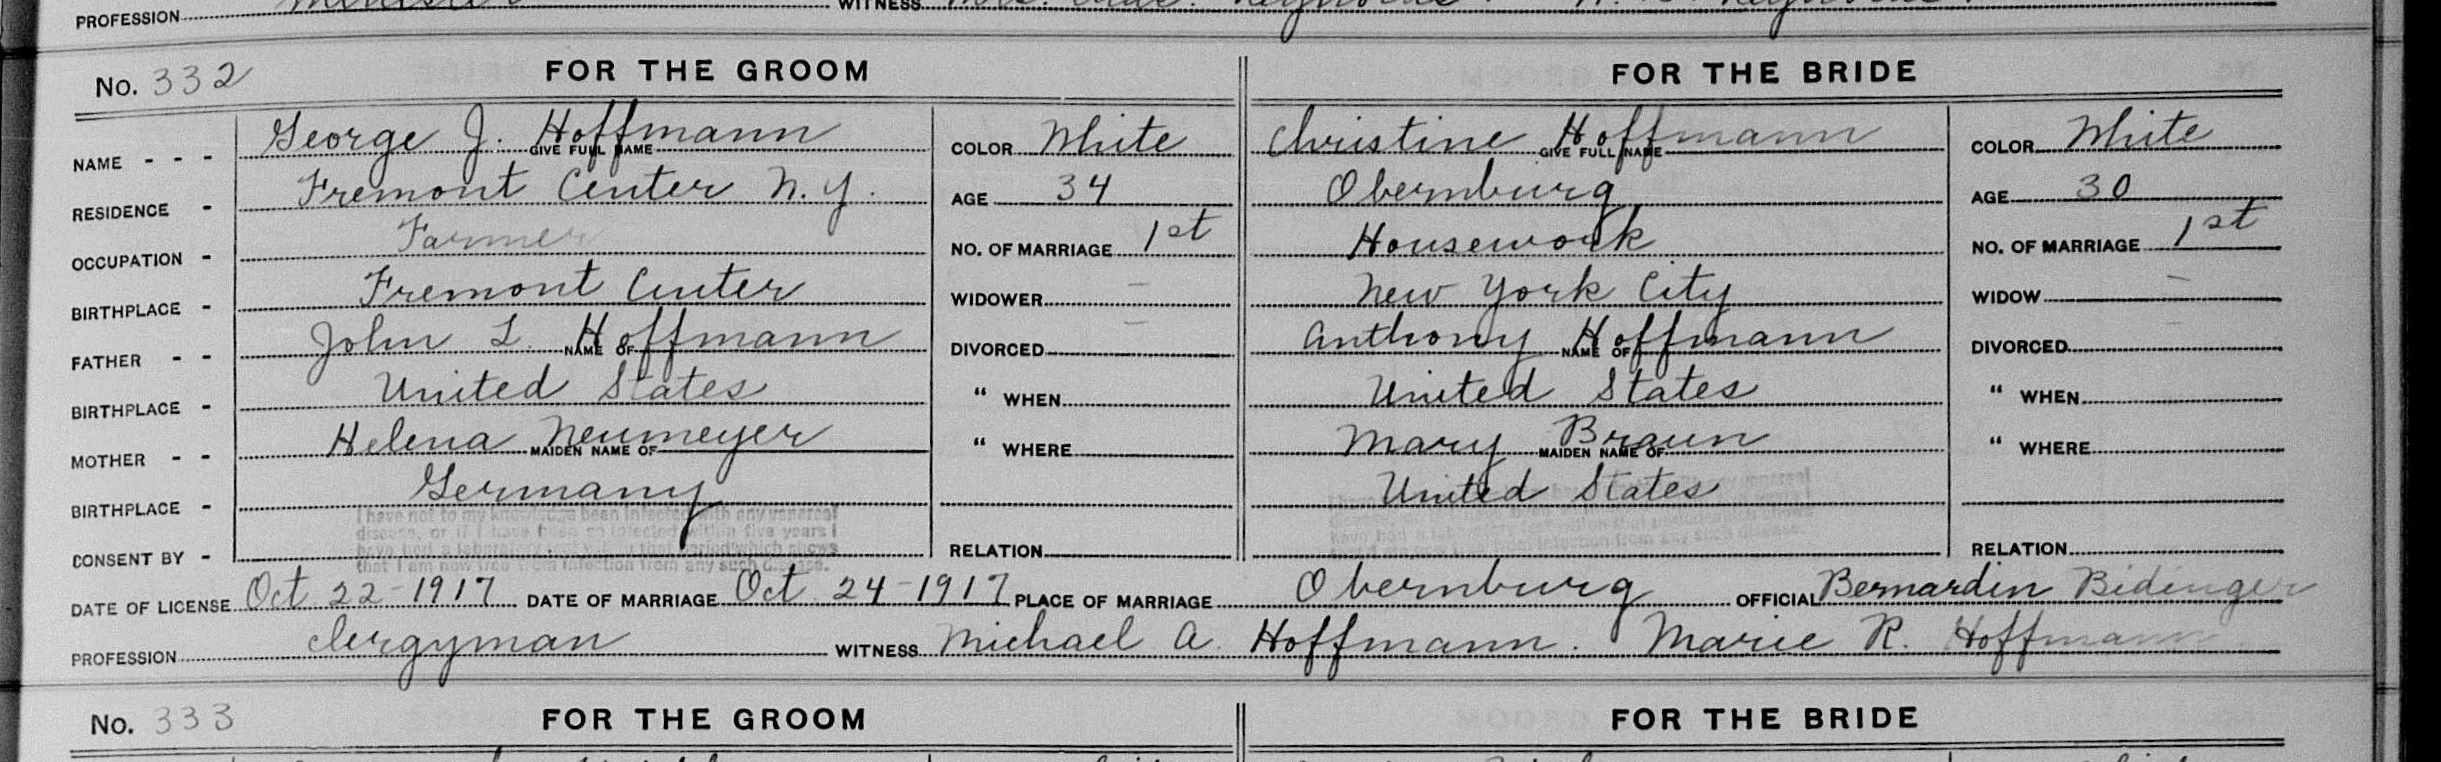 PROFESSION Minister WITNESS Mrs. Reynolds. Reynolds.
No. 332 FOR THE GROOM FOR THE BRIDE
NAME - - - George J. Hoffmann GIVE FULL NAME COLOR White Christine Hoffmann GIVE FULL NAME COLOR White
RESIDENCE - Fremont Center N.Y. AGE 34 Obernburg AGE 30
OCCUPATION - Farmer NO. OF MARRIAGE 1st Housework NO. OF MARRIAGE 1st
BIRTHPLACE - Fremont Center WIDOWER - New York City WIDOW -
FATHER - - John L. Hoffmann NAME OF DIVORCED - Anthony Hoffmann NAME OF DIVORCED
BIRTHPLACE - United States " WHEN United States " WHEN
MOTHER - - Helena Neumeyer MAIDEN NAME OF " WHERE Mary Braun MAIDEN NAME OF " WHERE
BIRTHPLACE - Germany United States
I have not to my knowledge been infected with any venereal
disease, or if I have been so infected within five years I
have had a laboratory test within that period which shows
that I am now free from infection from any such disease.
CONSENT BY - RELATION RELATION
DATE OF LICENSE Oct 22-1917 DATE OF MARRIAGE Oct 24-1917 PLACE OF MARRIAGE Obernburg OFFICIAL Bernardin Bidinger
PROFESSION Clergyman WITNESS Michael A. Hoffmann. Marie R. Hoffmann.
No. 333 FOR THE GROOM FOR THE BRIDE